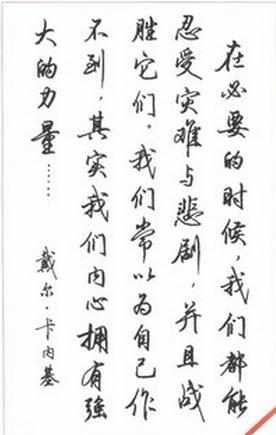 在必要的时候，我们都能
忍受灾难与悲剧，并且战
胜它们。我们常以为自己作
不到，其实我们内心拥有强
大的力量……
戴尔·卡内基